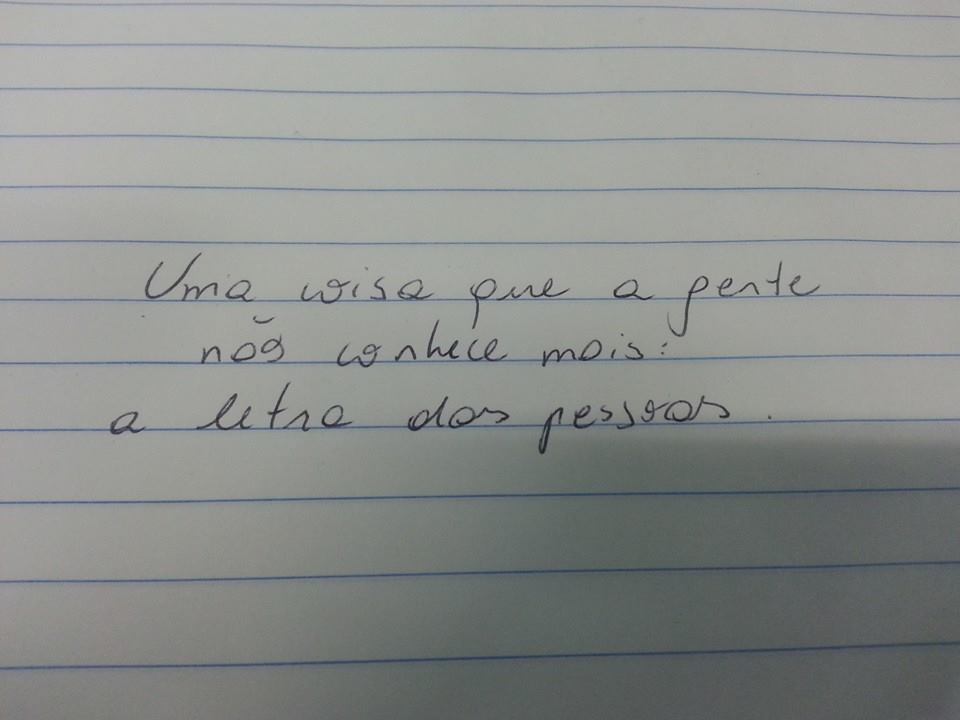 Uma coisa que a gente
não conhece mais:
a letra das pessoas.